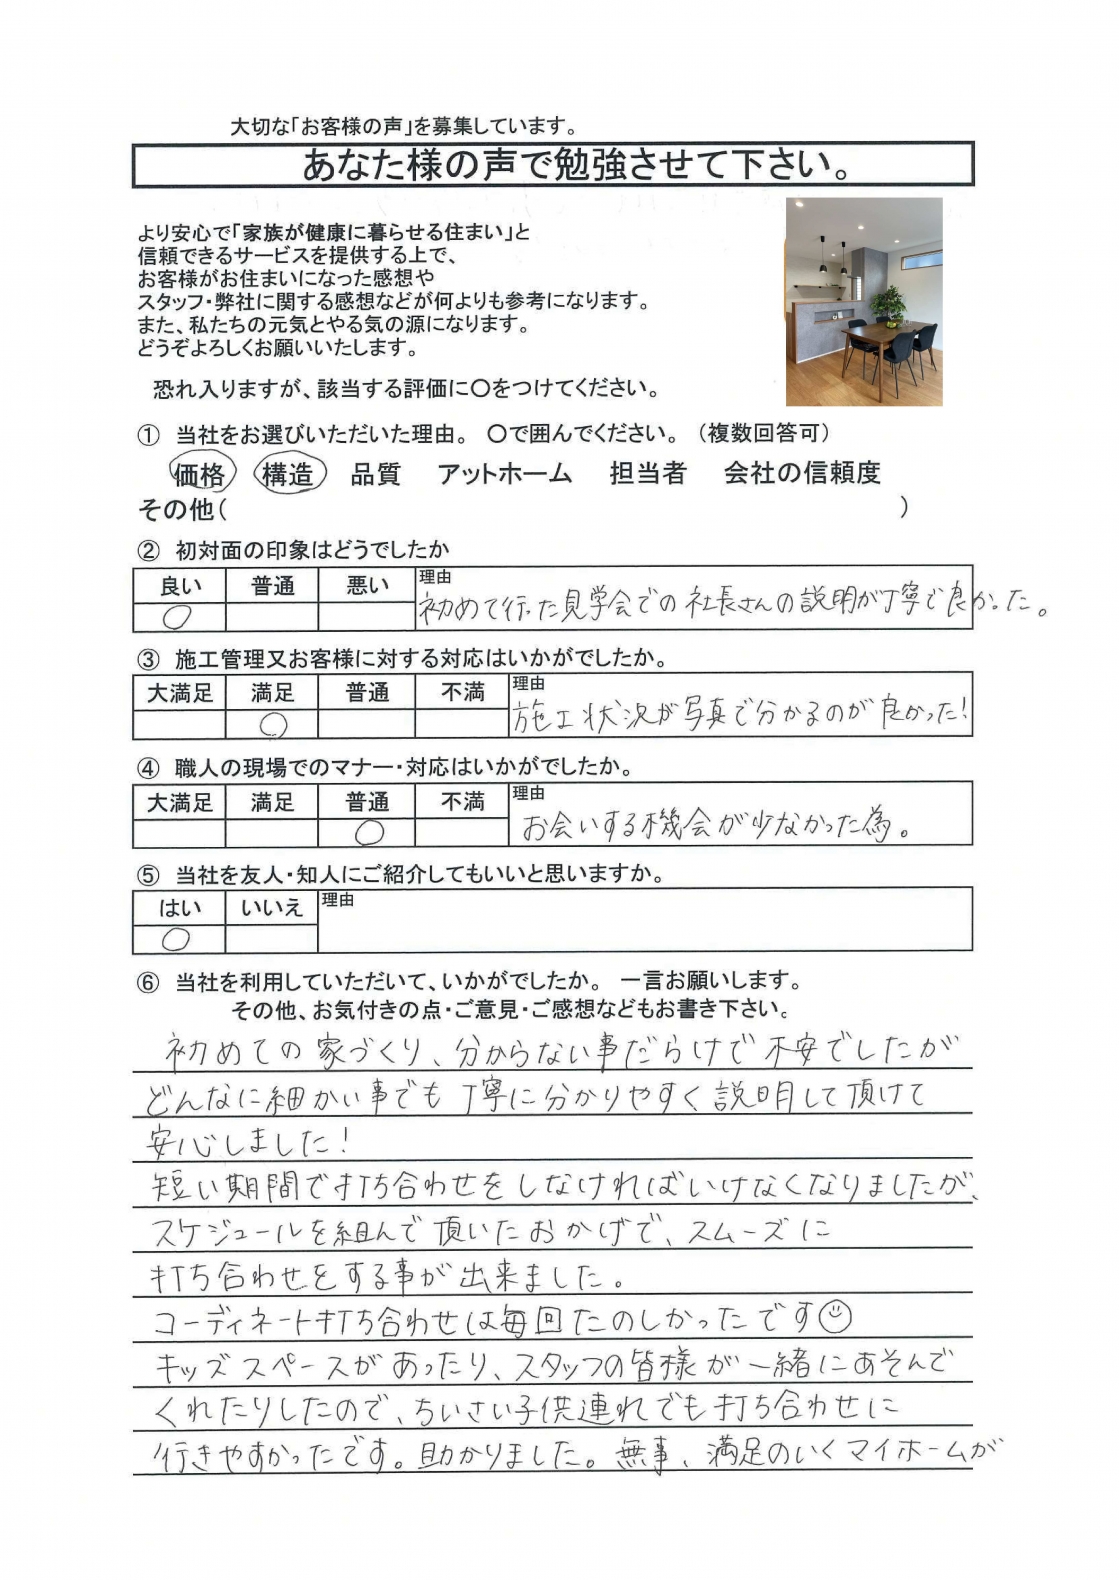 大切な「お客様の声」を募集しています。
あなた様の声で勉強させて下さい。
より安心で「家族が健康に暮らせる住まい」と
信頼できるサービスを提供する上で、
お客様がお住まいになった感想や
スタッフ・弊社に関する感想などが何よりも参考になります。
また、私たちの元気とやる気の源になります。
どうぞよろしくお願いいたします。
恐れ入りますが、該当する評価に〇をつけてください。
① 当社をお選びいただいた理由。 〇で囲んでください。（複数回答可）
価格 構造 品質 アットホーム 担当者 会社の信頼度
その他( )
② 初対面の印象はどうでしたか
良い 普通 悪い 理由
〇 初めて行った見学会での社長さんの説明が丁寧で良かった。
③ 施工管理又お客様に対する対応はいかがでしたか。
大満足 満足 普通 不満 理由
〇 施工状況が写真で分かるのが良かった!
④ 職人の現場でのマナー・対応はいかがでしたか。
大満足 満足 普通 不満 理由
〇 お会いする機会が少なかった為。
⑤ 当社を友人・知人にご紹介してもいいと思いますか。
はい いいえ 理由
〇
⑥ 当社を利用していただいて、いかがでしたか。 一言お願いします。
その他、お気付きの点・ご意見・ご感想などもお書き下さい。
初めての家づくり、分からない事だらけで不安でしたが
どんなに細かい事でも丁寧に分かりやすく説明して頂けて
安心しました!
短い期間で打ち合わせをしなければいけなくなりましたが、
スケジュールを組んで頂いたおかげで、スムーズに
打ち合わせをする事が出来ました。
コーディネート打ち合わせは毎回たのしかったです☺
キッズスペースがあったり、スタッフの皆様が一緒にあそんで
くれたりしたので、ちいさい子供連れでも打ち合わせに
行きやすかったです。助かりました。無事、満足のいくマイホームが